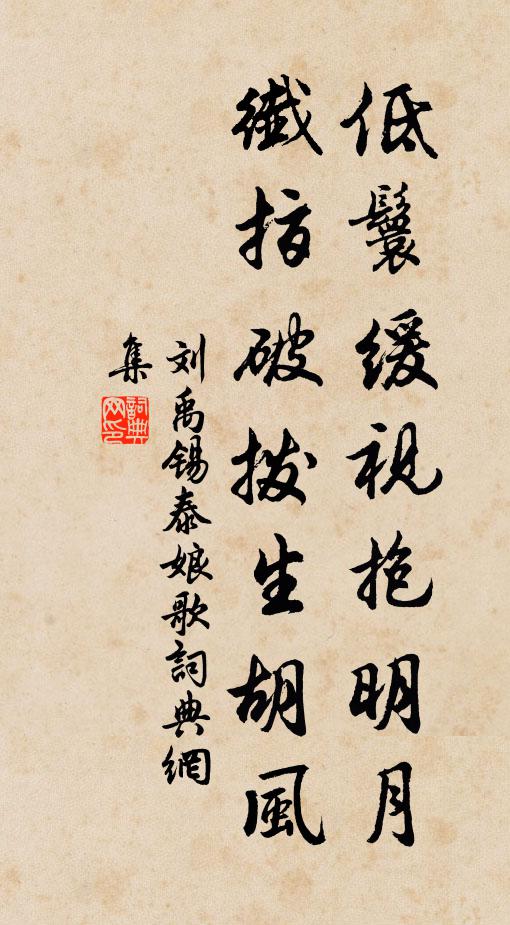 低鬟緩視抱明月
纖指破撥生胡風
刘禹锡泰娘歌詞典網
集
詞典网印